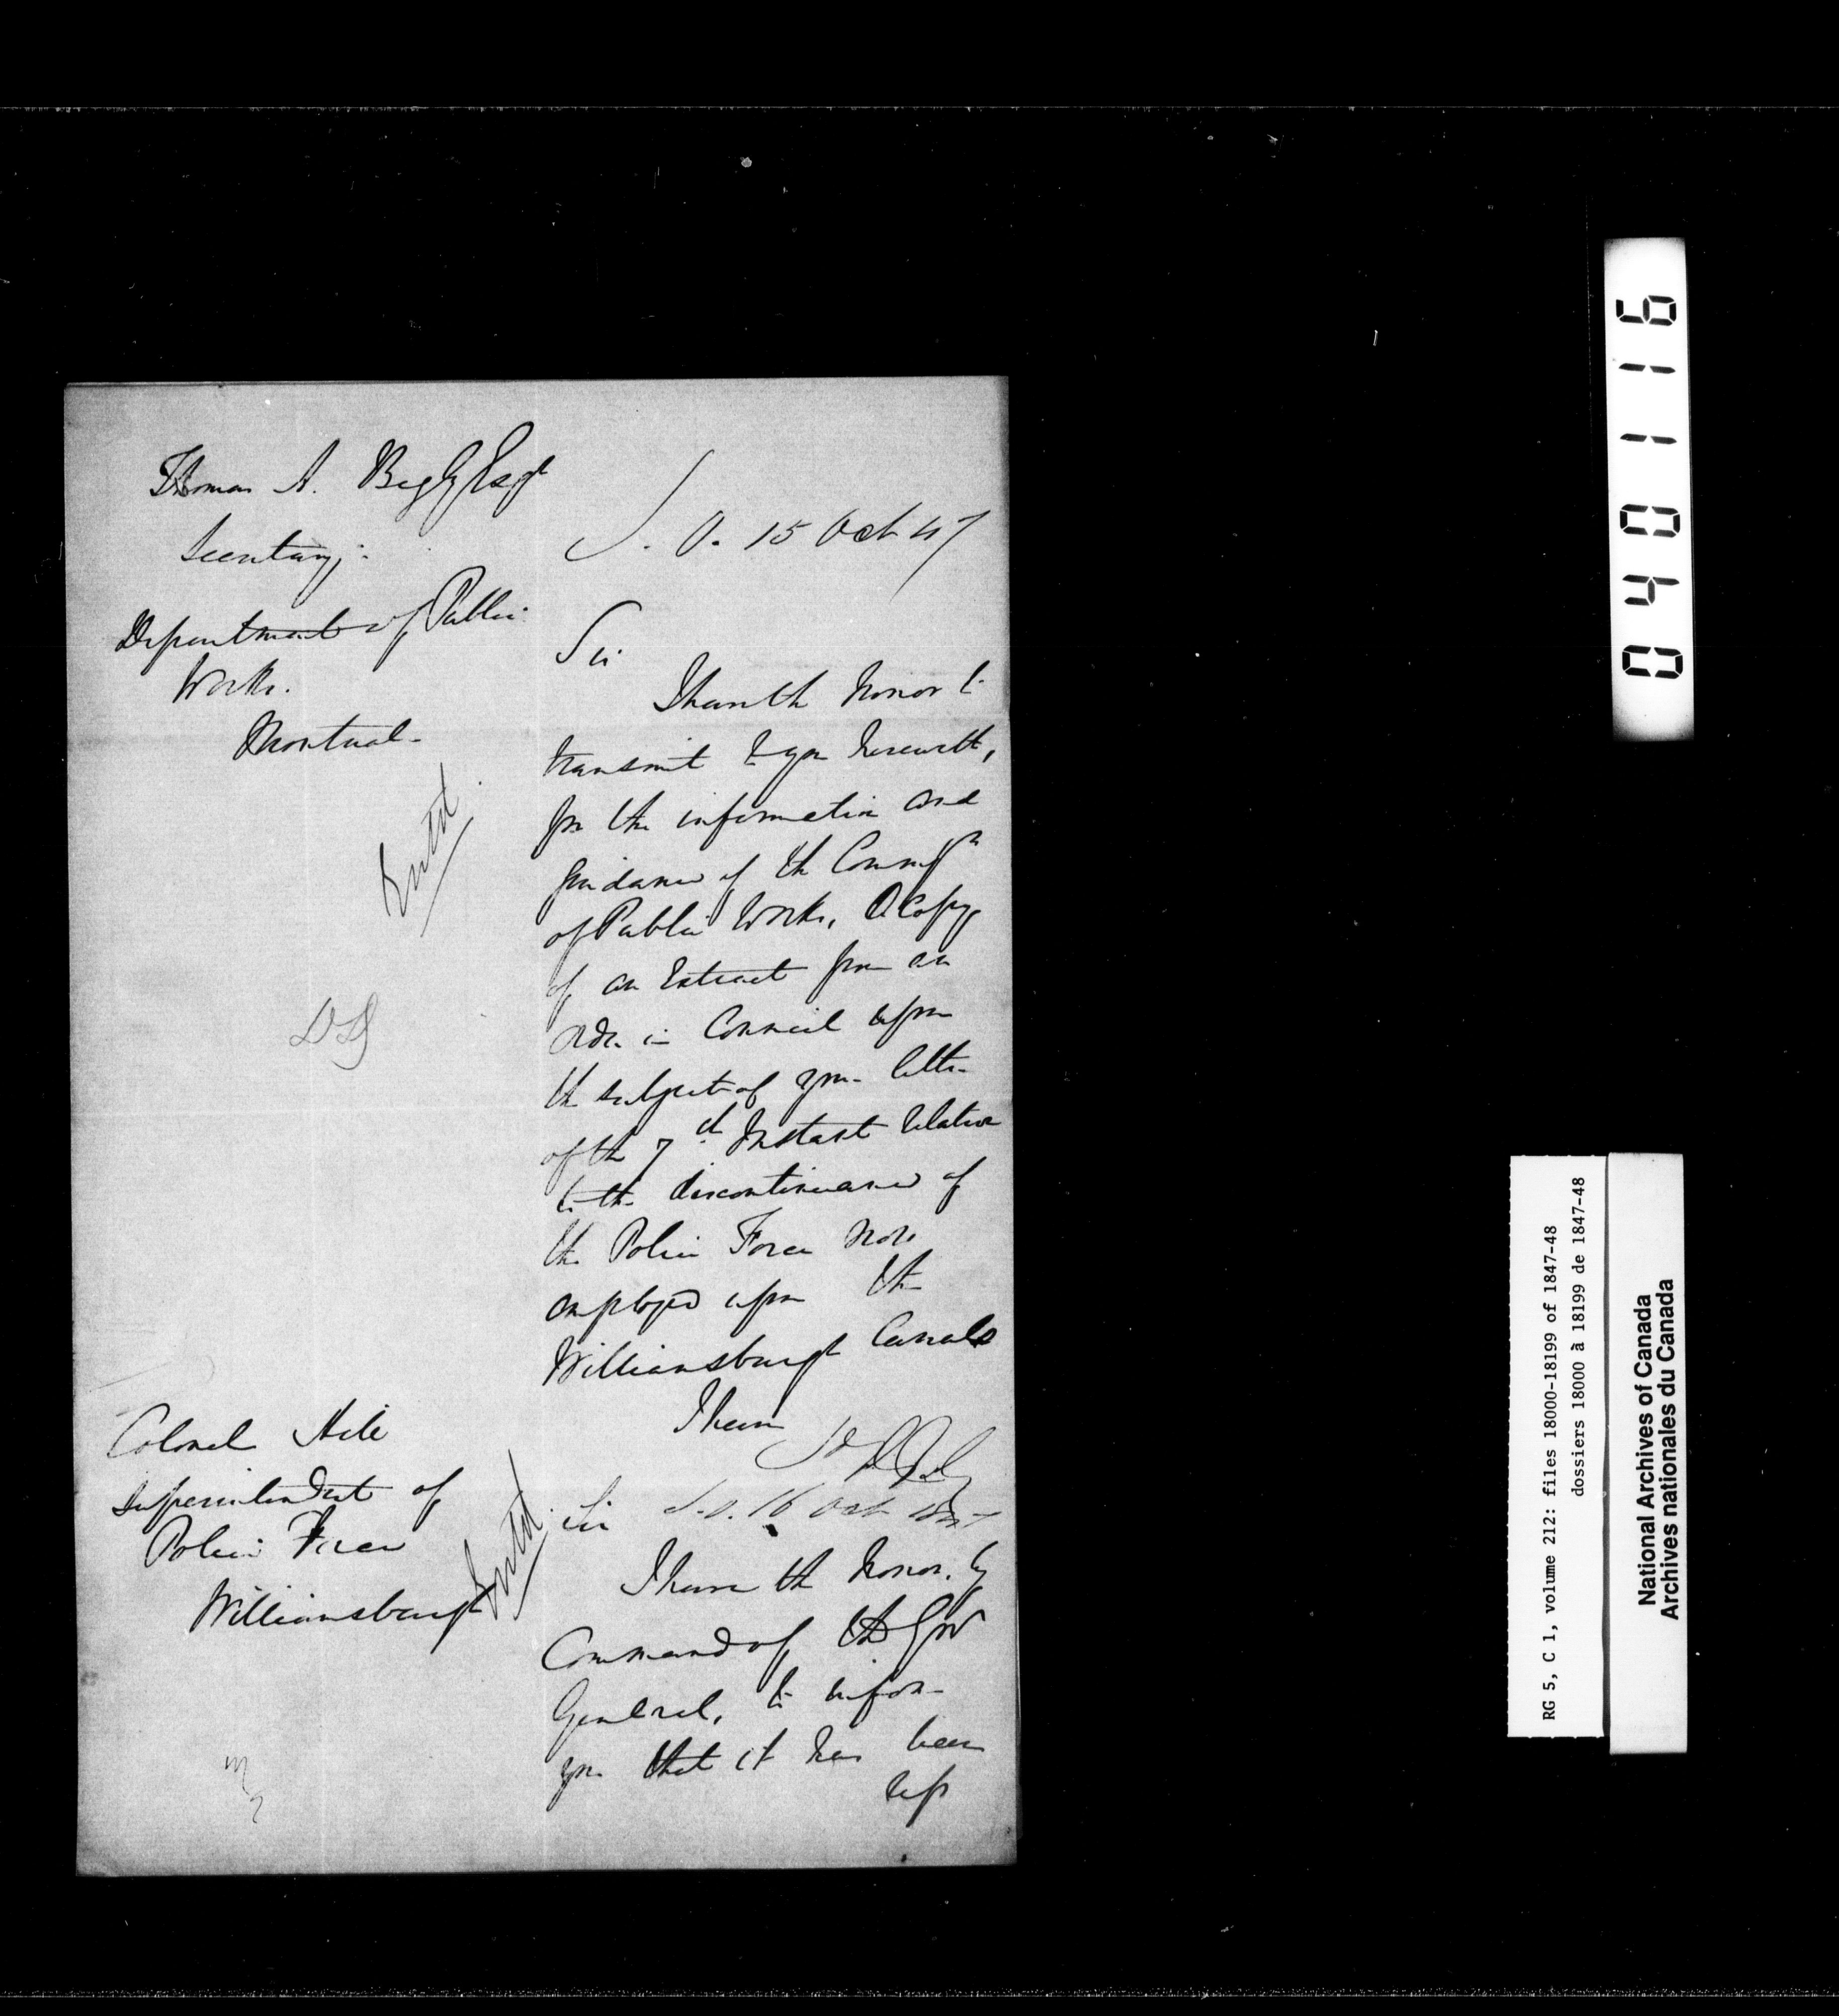 Thomas A. Begly Esqr
Secretary
Department of Public
Works.
Montreal.
Entd.
S. O. 15 Oct 47
Sir
I have the honor to
transmit to you herewith,
for the information and
guidance of the Commrs
of Public Works, a Copy
of an Extract from an
Order in Council upon
the subject of your letter
of the 7th Instant relative
to the discontinuance of
the Police Force now
employed upon the
Williamsburgh Canals
I have
Colonel Hill
Superintendent of
Police Force
Williamsburgh
Entd.
S.O. 16 Oct 1847
Sir
I have the honor, by
Command of the Govr
General, to inform
you that it has been
rep
040116
RG 5, C 1, volume 212: files 18000-18199 of 1847-48
dossiers 18000 à 18199 de 1847-48
National Archives of Canada
Archives nationales du Canada